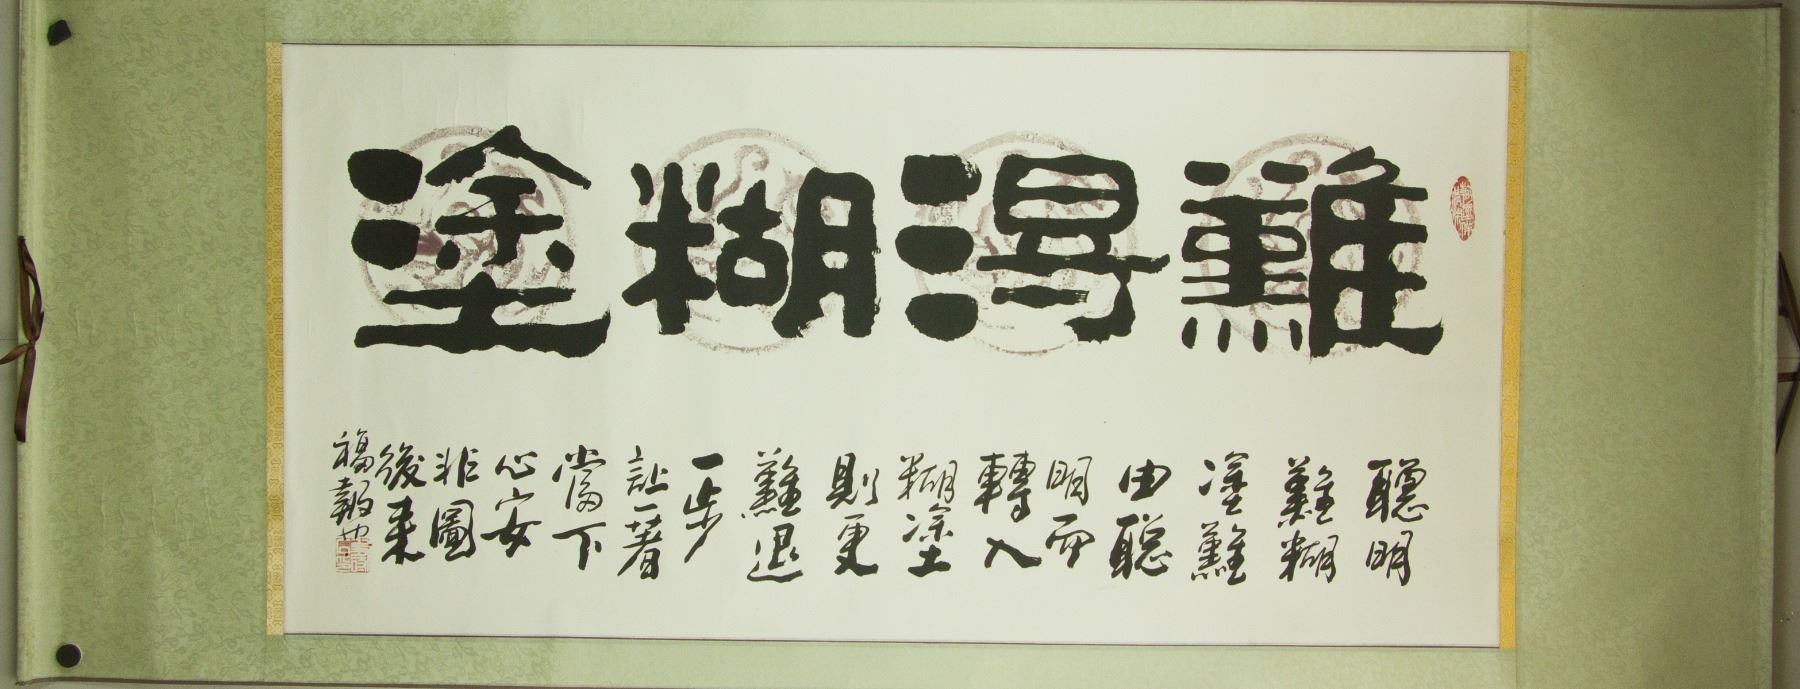 難得糊塗
聰明
難糊
塗難
由聰
明而
轉入
糊塗
則更
難退
一步
一著
當下
心安
非圖
後來
福報也